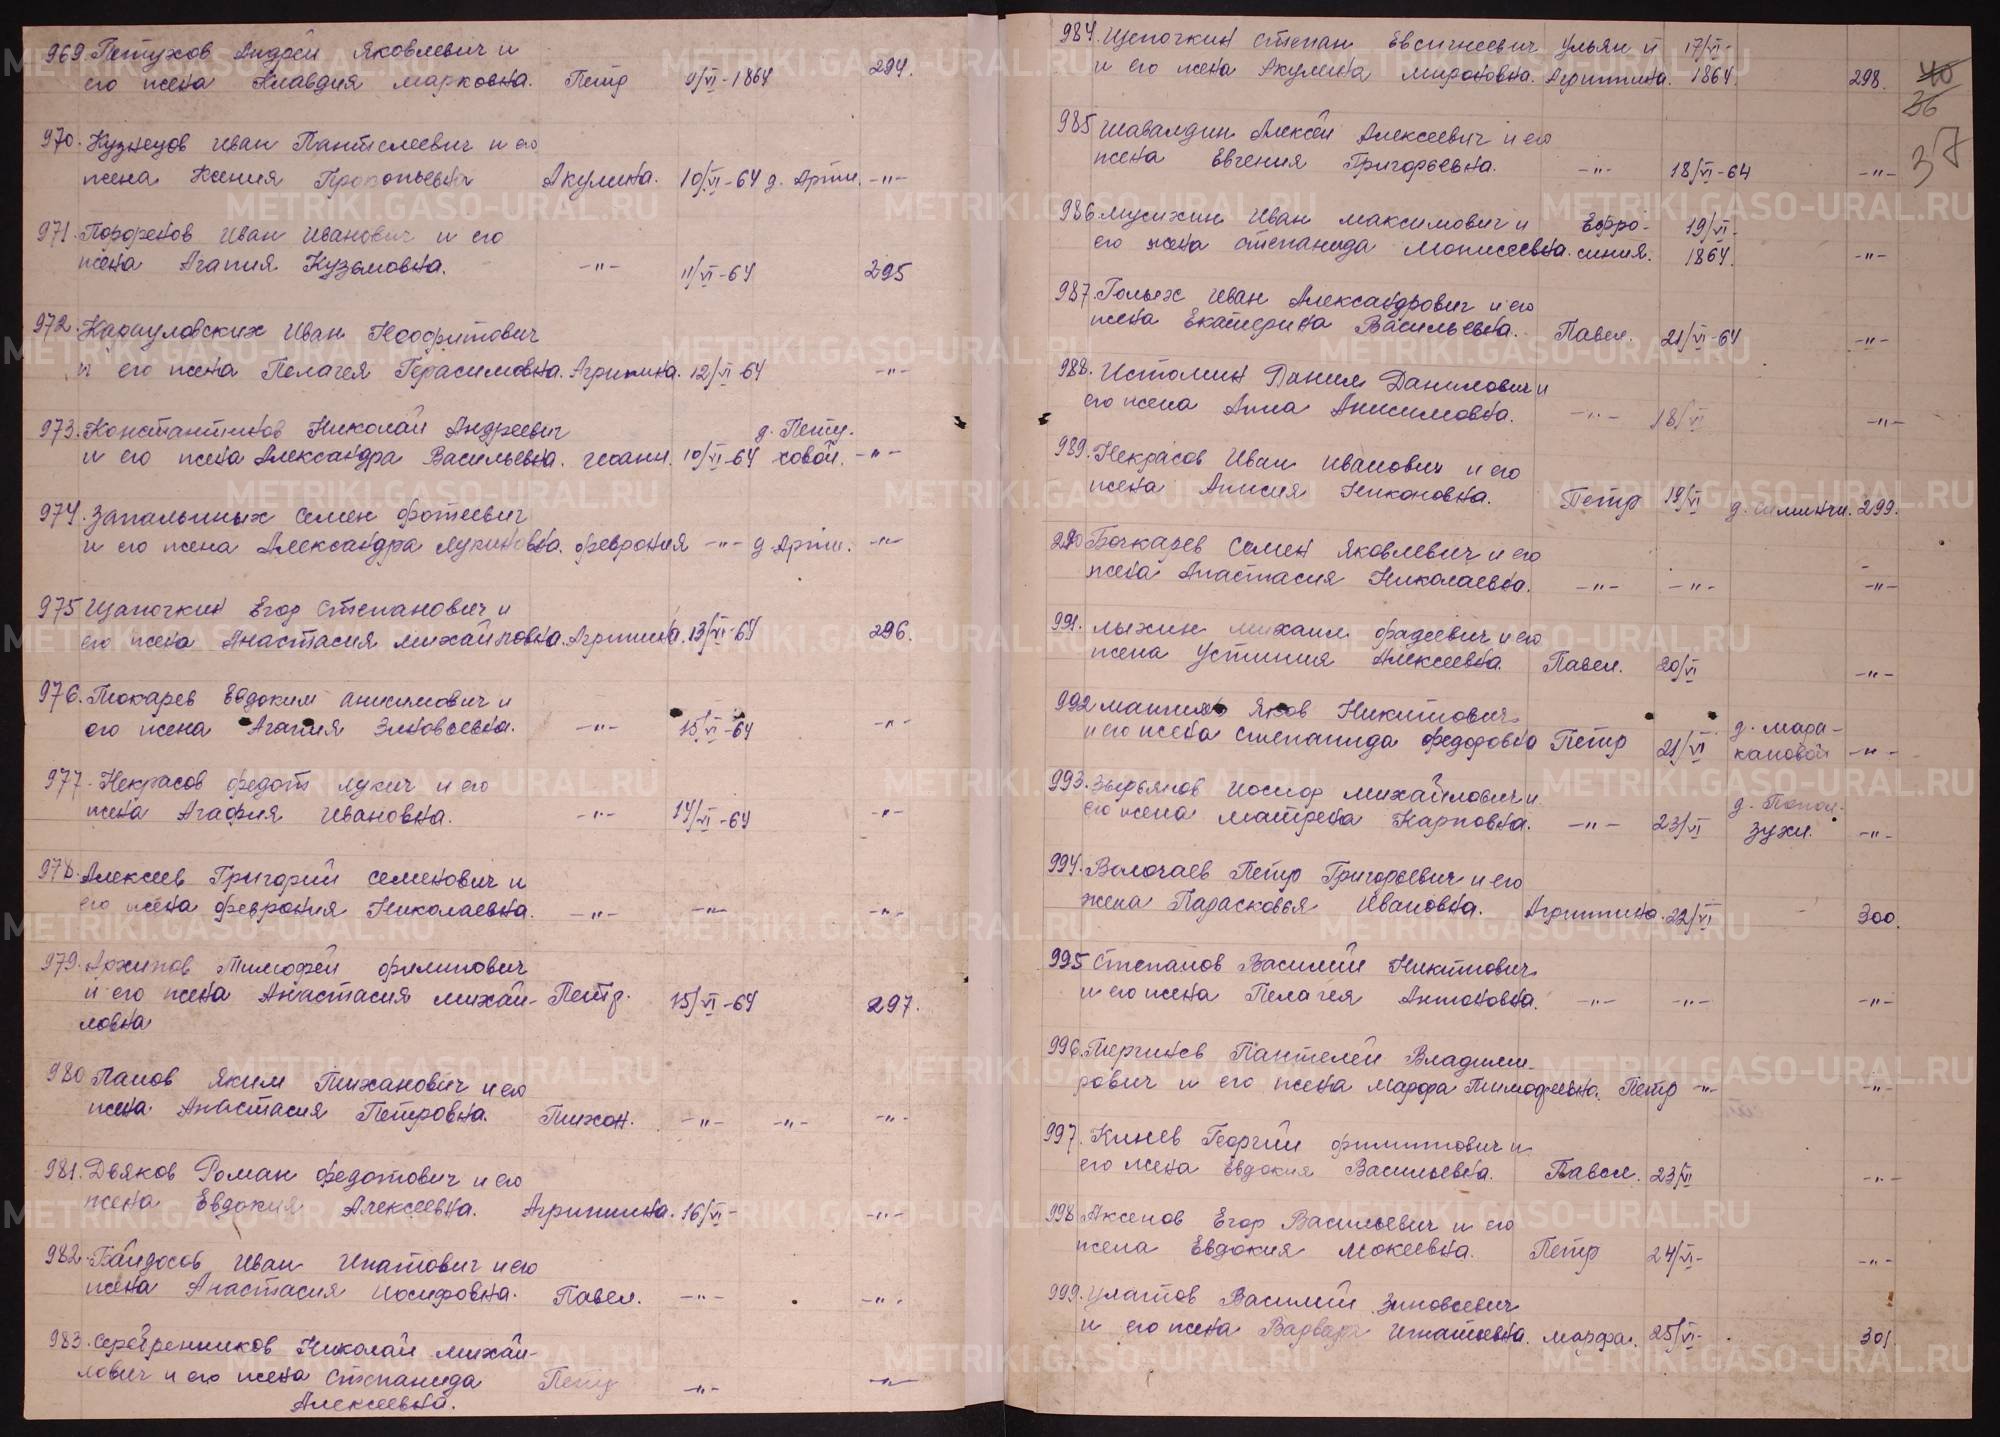 969. Петухов Андрей Яковлевич и
его жена Клавдия Марковна. Петр 9/VI-1864 294.
970. Кузнецов Иван Пантелеевич и его
жена Ксения Прокопьевна Акулина. 10/VI-64 д. Арти. -"-
971. Иван Иванович и его
жена Агапия Кузьмовна. -"- 11/VI-64 295
972. Карауловских Иван Неофитович
и его жена Пелагея Герасимовна. Агрипина. 12/VI-64 -"-
973. Константинов Николай Андреевич д. Пету-
и его жена Александра Васильевна. Иоанн. 10/VI-64 ховой. -"-
974. Запальных Семен Фотеевич
и его жена Александра Лукиновна. Феврония -"- д. Арти. -"-
975 Щапочкин Егор Степанович и
его жена Анастасия Михайловна. Агрипина. 13/VI-64 296.
976. Токарев Евдоким Анисимович и
его жена Агапия Зиновьевна. -"- 15/VI-64 -"-
977. Некрасов Федот Лукич и его
жена Агафия Ивановна. -"- 14/VI-64 -"-
978. Алексеев Григорий Семенович и
его жена Феврония Николаевна. -"- -"- -"-
979. Архипов Тимофей Филипович
и его жена Анастасия Михай- Петр. 15/VI-64 297.
ловна
980 Панов Яким Тиханович и его
жена Анастасия Петровна. Тихон. -"- -"- -"-
981. Дьяков Роман Федотович и его
жена Евдокия Алексеевна. Агрипина. 16/VI- -"-
982. Байдосов Иван Игнатович и его
жена Анастасия Иосифовна. Павел. -"- -"-
983. Серебренников Николай Михай-
лович и его жена Степанида Петр -"- -"-
Алексеевна.
984. Щепочкин Степан Евсигнеевич Ульян и 17/VI-
и его жена Акулина Мироновна. Агриппина. 1864. 298.
40
36
37
985 Шавалдин Алексей Алексеевич и его
жена Евгения Григорьевна. -"- 18/VI-64 -"-
986 Мусихин Иван Максимович и Ефро- 19/VI-
его жена Степанида Моисеевна. синия. 1864. -"-
987. Голых Иван Александрович и его
жена Екатерина Васильевна. Павел. 21/VI-64 -"-
988. Истомин Данил Данилович и
его жена Анна Анисимовна. -"- 18/VI -"-
989. Некрасов Иван Иванович и его
жена Анисия Никоновна. Петр 19/VI д. 299.
990 Бочкарев Семен Яковлевич и его
жена Анастасия Николаевна. -"- -"- -"-
991. Лыхин Михаил Фадеевич и его
жена Устиния Алексеевна. Павел. 20/VI -"-
992 Яков Никитович д. Мара-
и его жена Степанида Федоровна Петр 21/VI кановой -"-
993. Зырьянов Иосиф Михайлович и
его жена Матрена Карповна. -"- 23/VI д. зухи. -"-
994. Волочаев Петр Григорьевич и его
жена Парасковья Ивановна. Агриппина. 22/VI 300.
995 Степанов Василий Никитович
и его жена Пелагея Антоновна. -"- -"- -"-
996. Пантелей Владими-
рович и его жена Марфа Тимофеевна. Петр -"- -"-
997. Кинев Георгий Филиппович и
его жена Евдокия Васильевна. Павел. 23/VI -"-
998. Аксенов Егор Васильевич и его
жена Евдокия Мокеевна. Петр 24/VI- -"-
999. Улатов Василий Зиновьевич
и его жена Варвара Игнатьевна. Марфа. 25/VI- 301.
METRIKI.GASO-URAL.RU